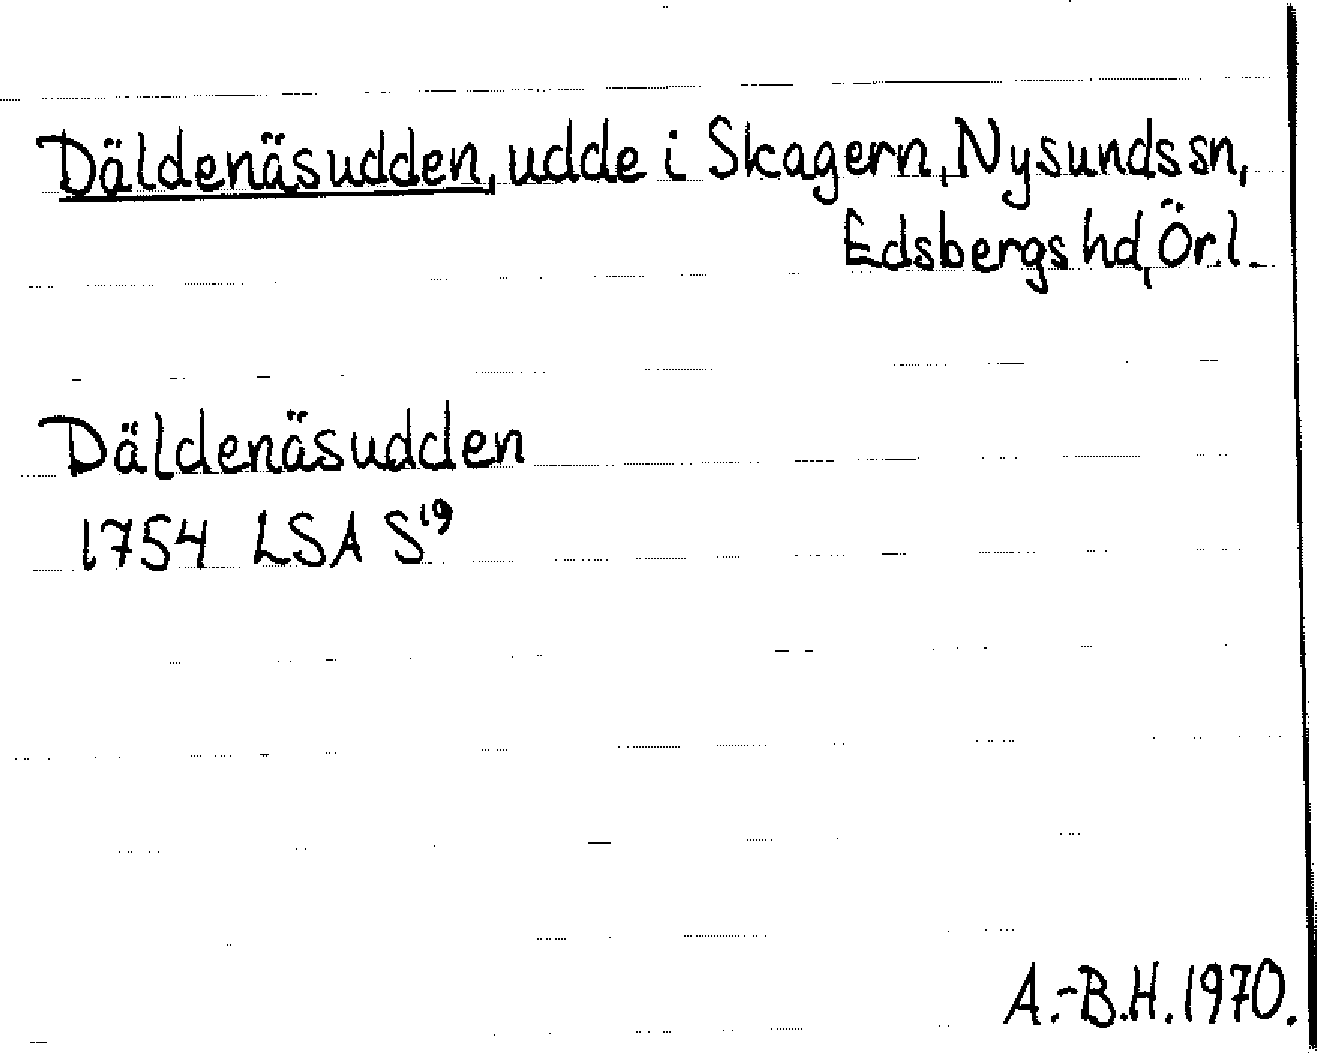 Däldenäsudden, udde i Skagern, Nysunds sn,
Edsbergs hd, Ör.l.
Däldenäsudden
1754 LSA S¹⁹
A.-B.H. 1970.